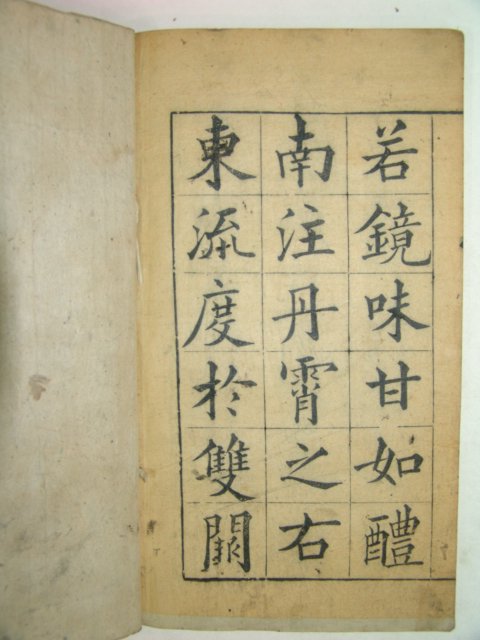 若鏡味甘如醴
南注丹霄之右
東流度於雙闕